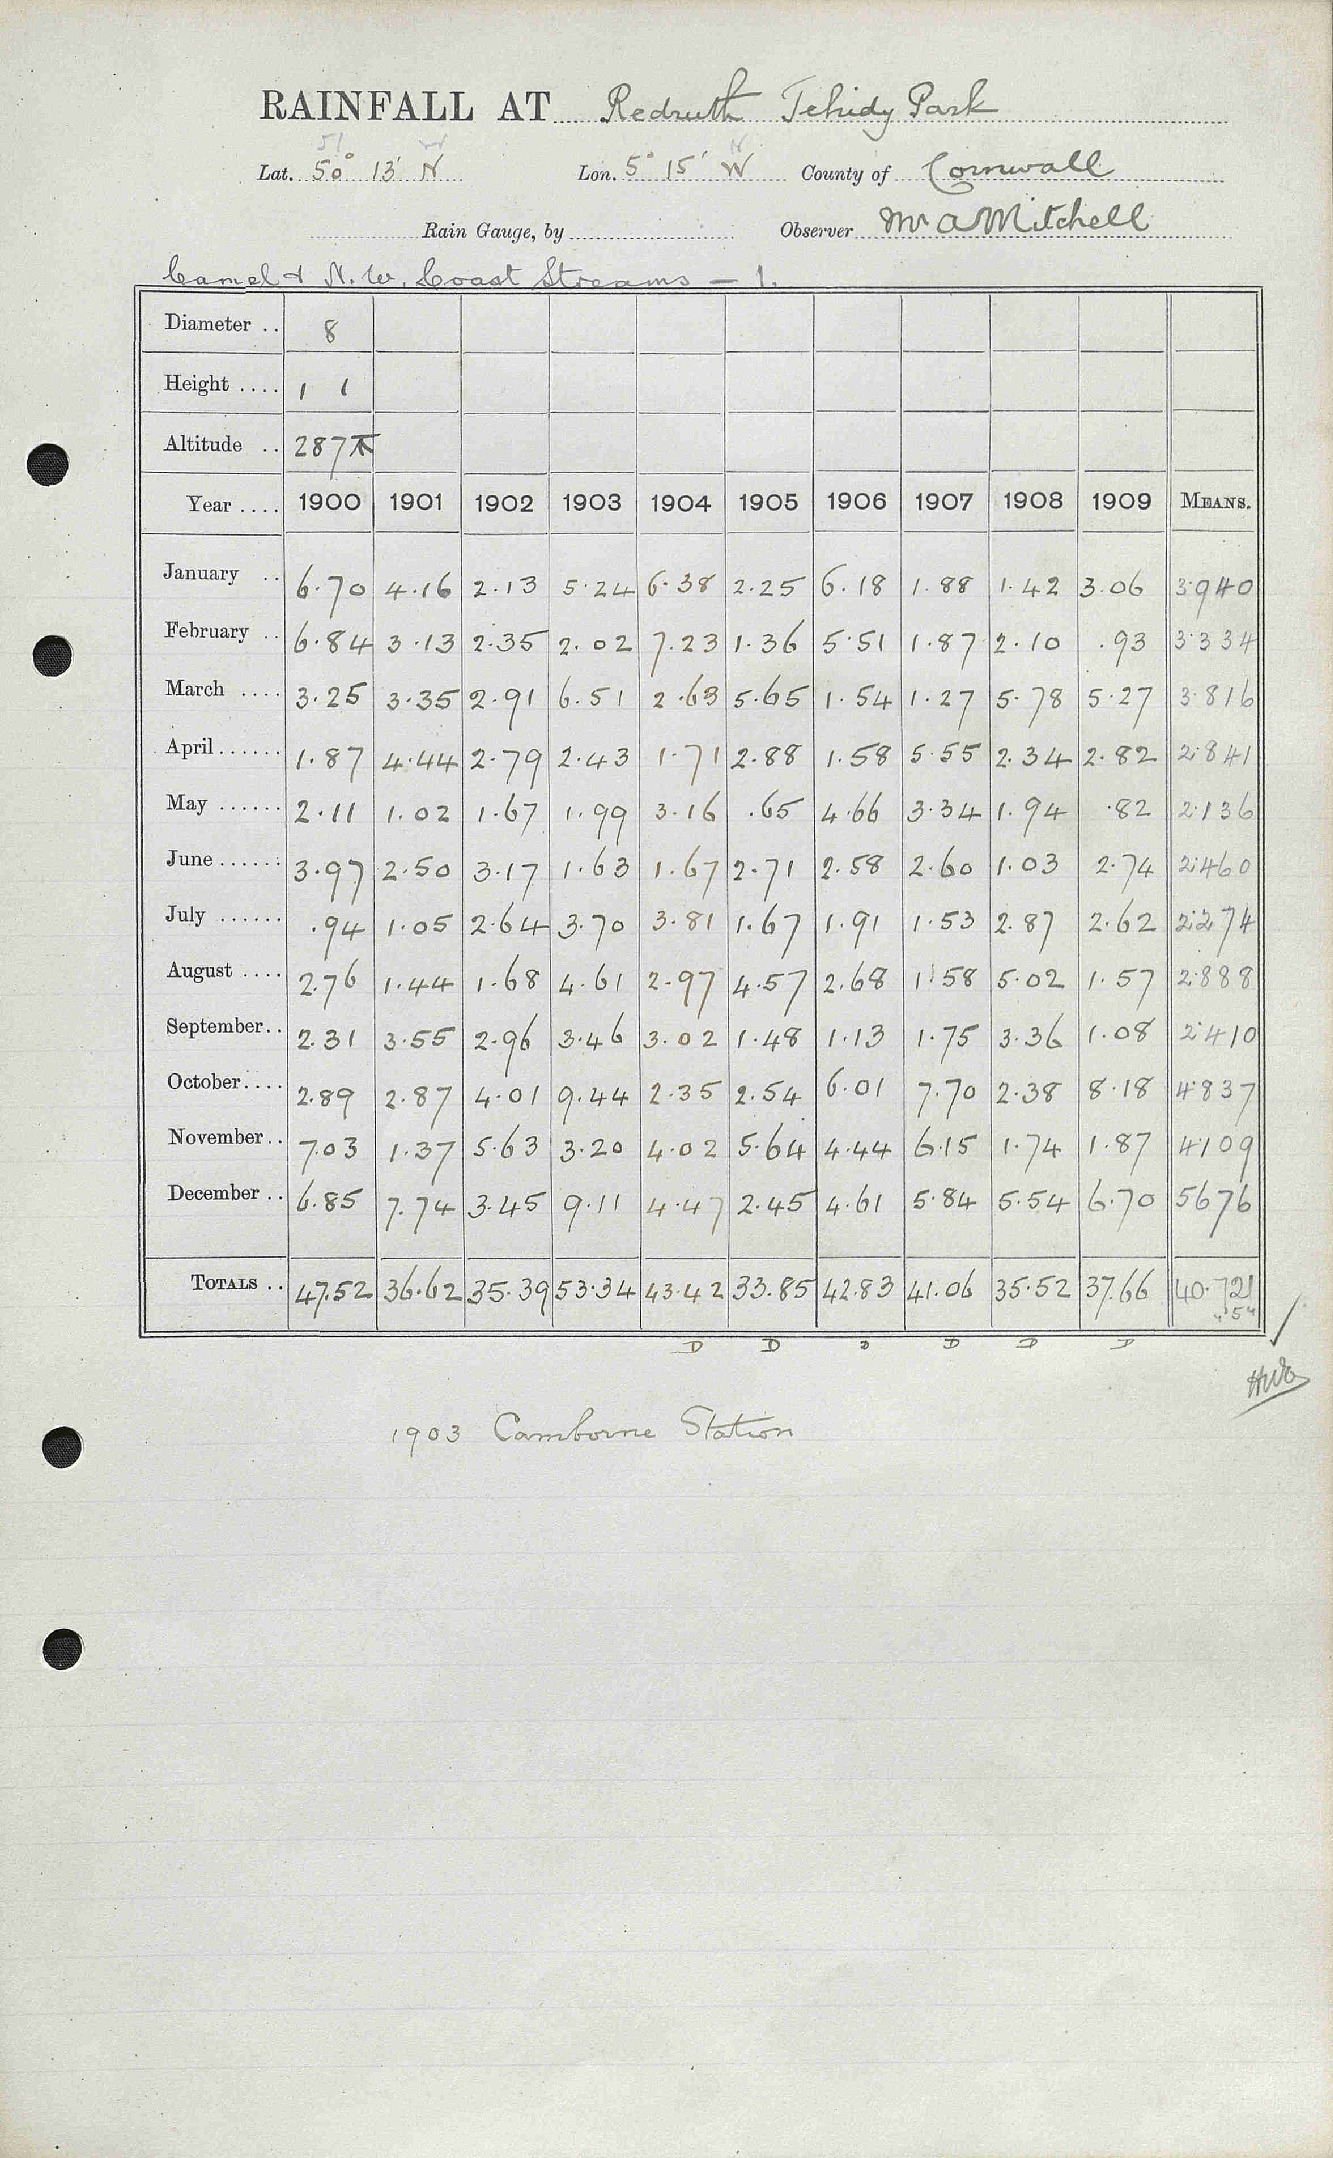 RAINFALL AT Redruth Tehidy Park
51
Lat. 50° 13' N Lon. 5° 15' W County of Cornwall
Rain Gauge, by Observer Mr A Mitchell
Camel & N.W. Coast Streams — 1.
Diameter .. 8
Height .... 1 1
Altitude .. 287
Year .... 1900 1901 1902 1903 1904 1905 1906 1907 1908 1909 MEANS.
January .. 6.70 4.16 2.13 5.24 6.38 2.25 6.18 1.88 1.42 3.06 3.940
February .. 6.84 3.13 2.35 2.02 7.23 1.36 5.51 1.87 2.10 .93 3.334
March .... 3.25 3.35 2.91 6.51 2.63 5.65 1.54 1.27 5.78 5.27 3.816
April ...... 1.87 4.44 2.79 2.43 1.71 2.88 1.58 5.55 2.34 2.82 2.841
May ...... 2.11 1.02 1.67 1.99 3.16 .65 4.66 3.34 1.94 .82 2.136
June ...... 3.97 2.50 3.17 1.63 1.67 2.71 2.58 2.60 1.03 2.74 2.460
July ...... .94 1.05 2.64 3.70 3.81 1.67 1.91 1.53 2.87 2.62 2.274
August .... 2.76 1.44 1.68 4.61 2.97 4.57 2.68 1.58 5.02 1.57 2.888
September .. 2.31 3.55 2.96 3.46 3.02 1.48 1.13 1.75 3.36 1.08 2.410
October .... 2.89 2.87 4.01 9.44 2.35 2.54 6.01 7.70 2.38 8.18 4.837
November .. 7.03 1.37 5.63 3.20 4.02 5.64 4.44 6.15 1.74 1.87 4.109
December .. 6.85 7.74 3.45 9.11 4.47 2.45 4.61 5.84 5.54 6.70 5676
TOTALS .. 47.52 36.62 35.39 53.34 43.42 33.85 42.83 41.06 35.52 37.66 40.721
D D D D D D
1903 Camborne Station